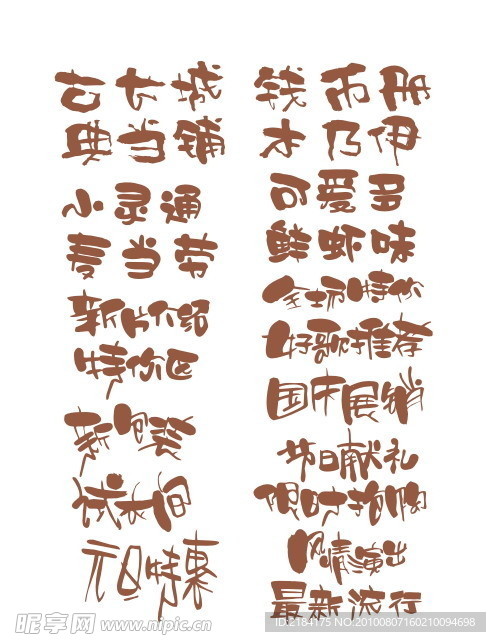 古长城
典当铺
小灵通
麦当劳
新片介绍
特价区
新包装
试衣间
元旦特惠
钱币册
木乃伊
可爱多
鲜虾味
全场特价
好歌推荐
国庆展销
节日献礼
限时抢购
风情演出
最新流行
昵享网 www.nipic.cn
ID:2184175 NO:20100807160210094698